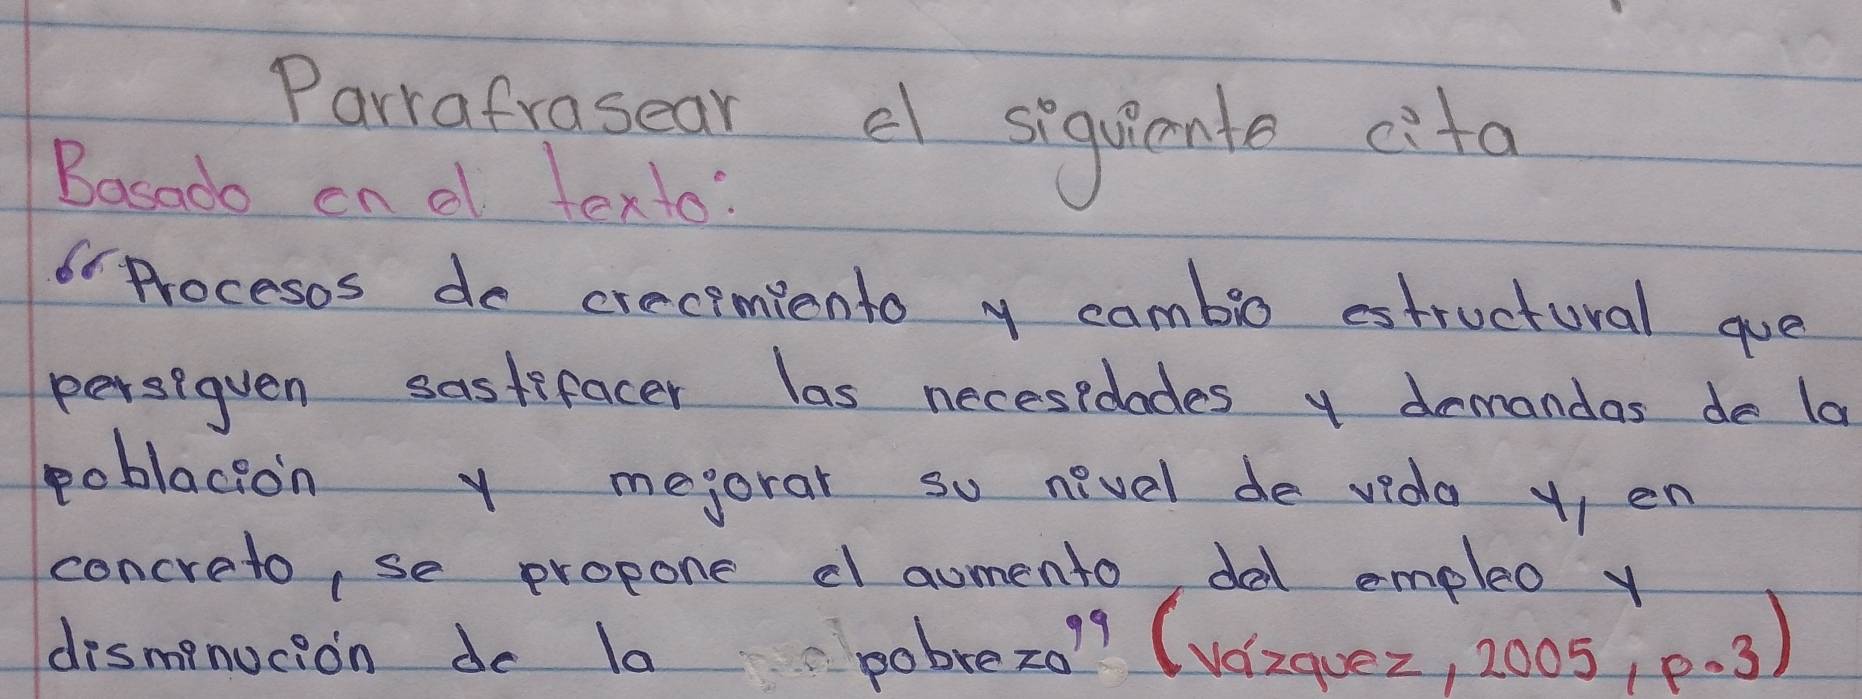 Parrafrasear el siguiente cita
Basado en el texto:
“Procesos de crecimiento y cambio estructural que
persiguen sastifacer las necesidades y demandas de la
población y mejorar su nivel de vida y, en
concreto, se propone el aumento del empleo y
disminución de la pobreza”. (Vázquez, 2005, p.3)